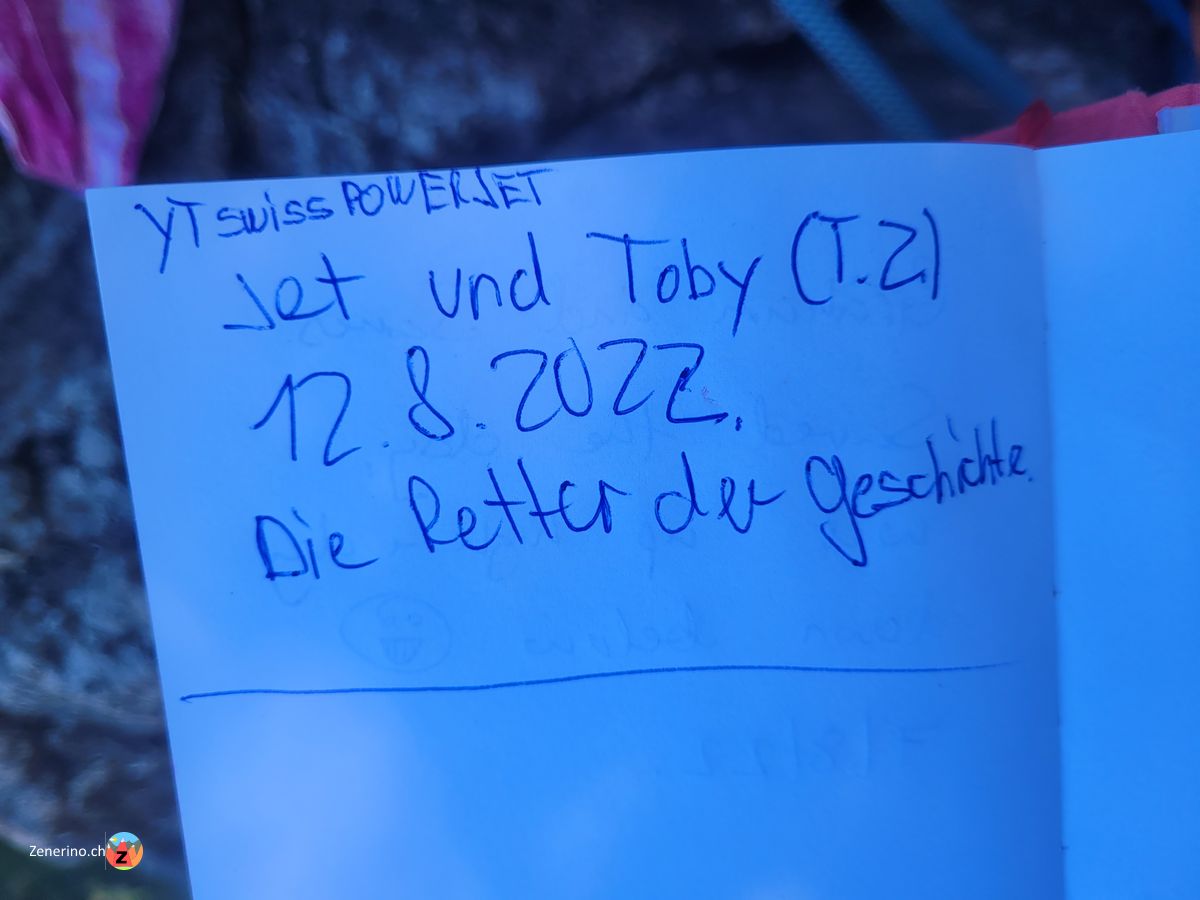 YT swiss POWERJET
Jet und Toby (T.Z)
12.8.2022.
Die Retter der Geschichte.
Zenerino.ch
Z